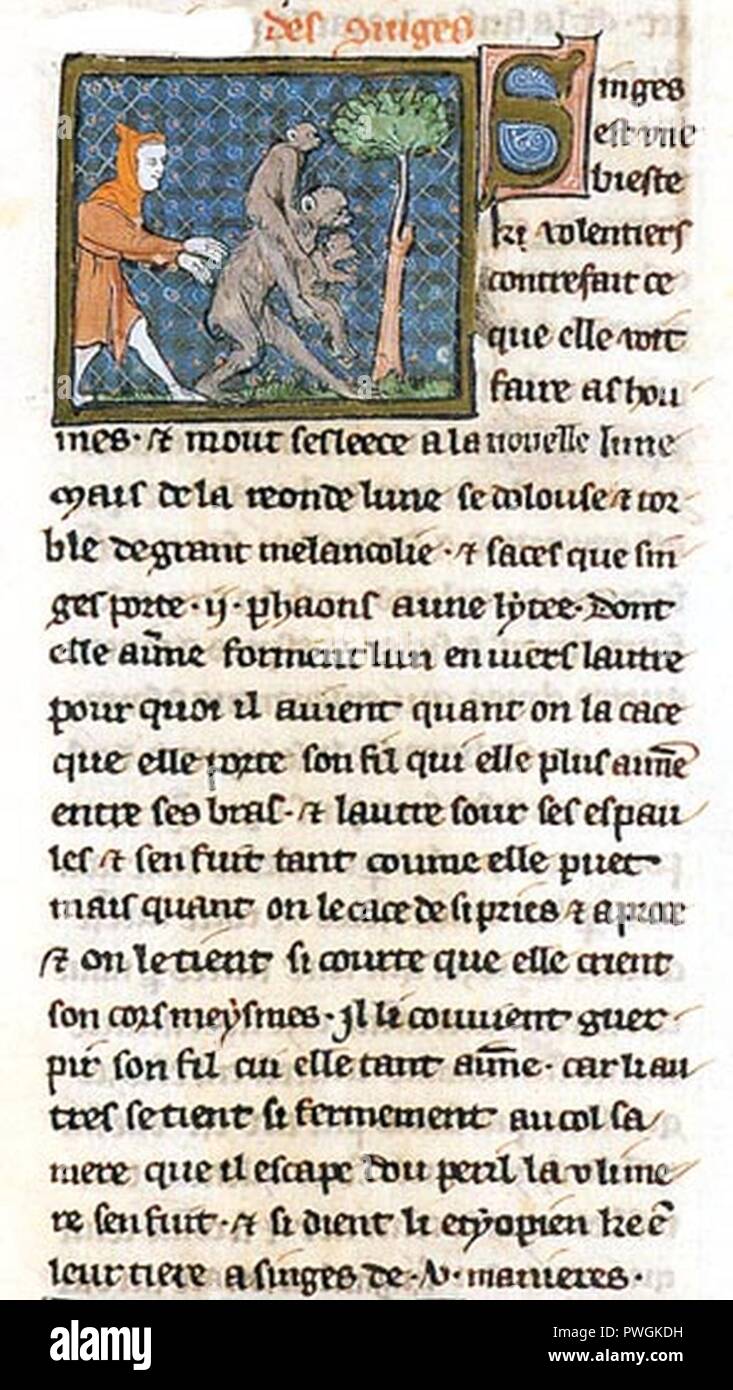 des singes
Singes
est une
bieste
ki volentiers
contrefait ce
que elle voit
faire as hou
mes · ⁊ mout sesleece a la nouelle lune
Mais de la reonde lune se dolouse ⁊ tor
ble de grant melancolie · ⁊ saces que sin
ges porte · ij · phaons a une lytee · Dont
elle aīme forment lun enuiers lautre
pour quoi il auient quant on la cace
que elle porte son fil qui elle plus aīme
entre ses bras · ⁊ lautre sour ses espau
les ⁊ senfuit tant coume elle puet
mais quant on le cace de si pries ⁊
⁊ on le tient si courte que elle crient
son cors meysmes · Jl li couuient guer
pir son fil cui elle tant aīme · car li au
tres se tient si fermement au col sa
mere que il escape dou peril la u li me
re senfuit · ⁊ si dient li etyopien ke ē
leur tiere a singes de · v · manieres ·
alamy
Image ID: PWGKDH
www.alamy.com